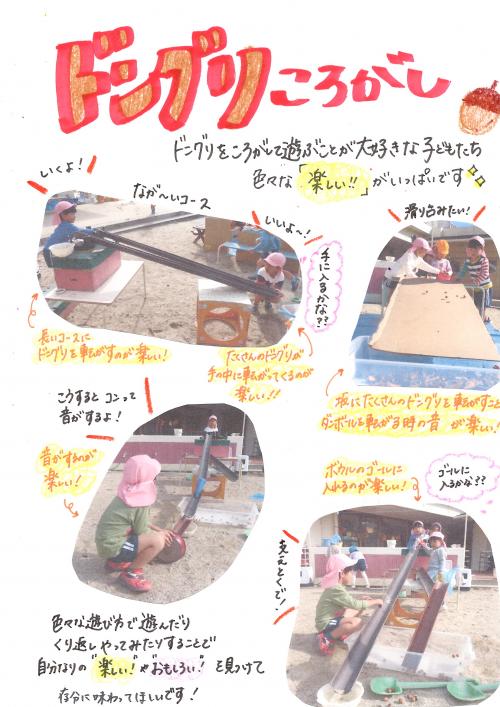 ドングリころがし
ドングリをころがして遊ぶことが大好きな子どもたち
色々な「楽しい!!」がいっぱいです
いくよ!
なが〜いコース
いいよ〜!
手に入るかな??
滑り台みたい!
長いコースに
ドングリを転がすのが楽しい!
たくさんのドングリが
手の中に転がってくるのが
楽しい!!
坂にたくさんのドングリを転がすこと
ダンボールを転がる時の音が楽しい!
こうするとコンって
音がするよ!
音がするのが
楽しい!
ボウルのゴールに
入れるのが楽しい!
ゴールに
入るかな??
支えとくで!
色々な遊び方で遊んだり
くり返しやってみたりすることで
自分なりの"楽しい!"や"おもしろい!"を見つけて
存分に味わってほしいです!